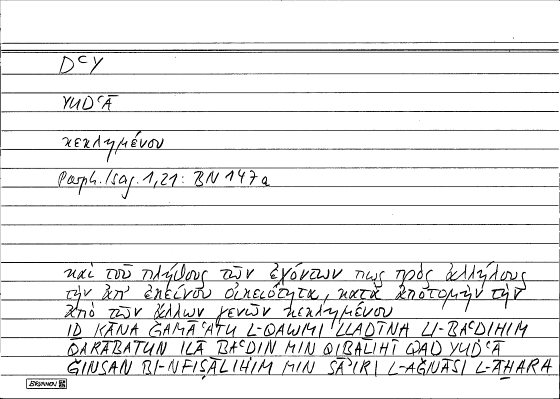 DʿY
YUDʿĀ
κεκλημένου
Porph. Isag. 1,21: BN 147a
καὶ τοῦ πλήθους τῶν ἐχόντων πως πρὸς ἀλλήλους
τὴν ἀπ' ἐκείνου οἰκειότητα, κατὰ ἀποτομὴν τὴν
ἀπὸ τῶν ἄλλων γενῶν κεκλημένου
ID KĀNA ǦAMĀʿATU L-QAWMI LLADĪNA LI-BAʿDIHIM
QARĀBATUN ILĀ BAʿDIN MIN QIBALIHĪ QAD YUDʿĀ
ǦINSAN BI-NFIṢĀLIHIM MIN SĀʾIRI L-AǦNĀSI L-ĀḪARA
BRUNNEN